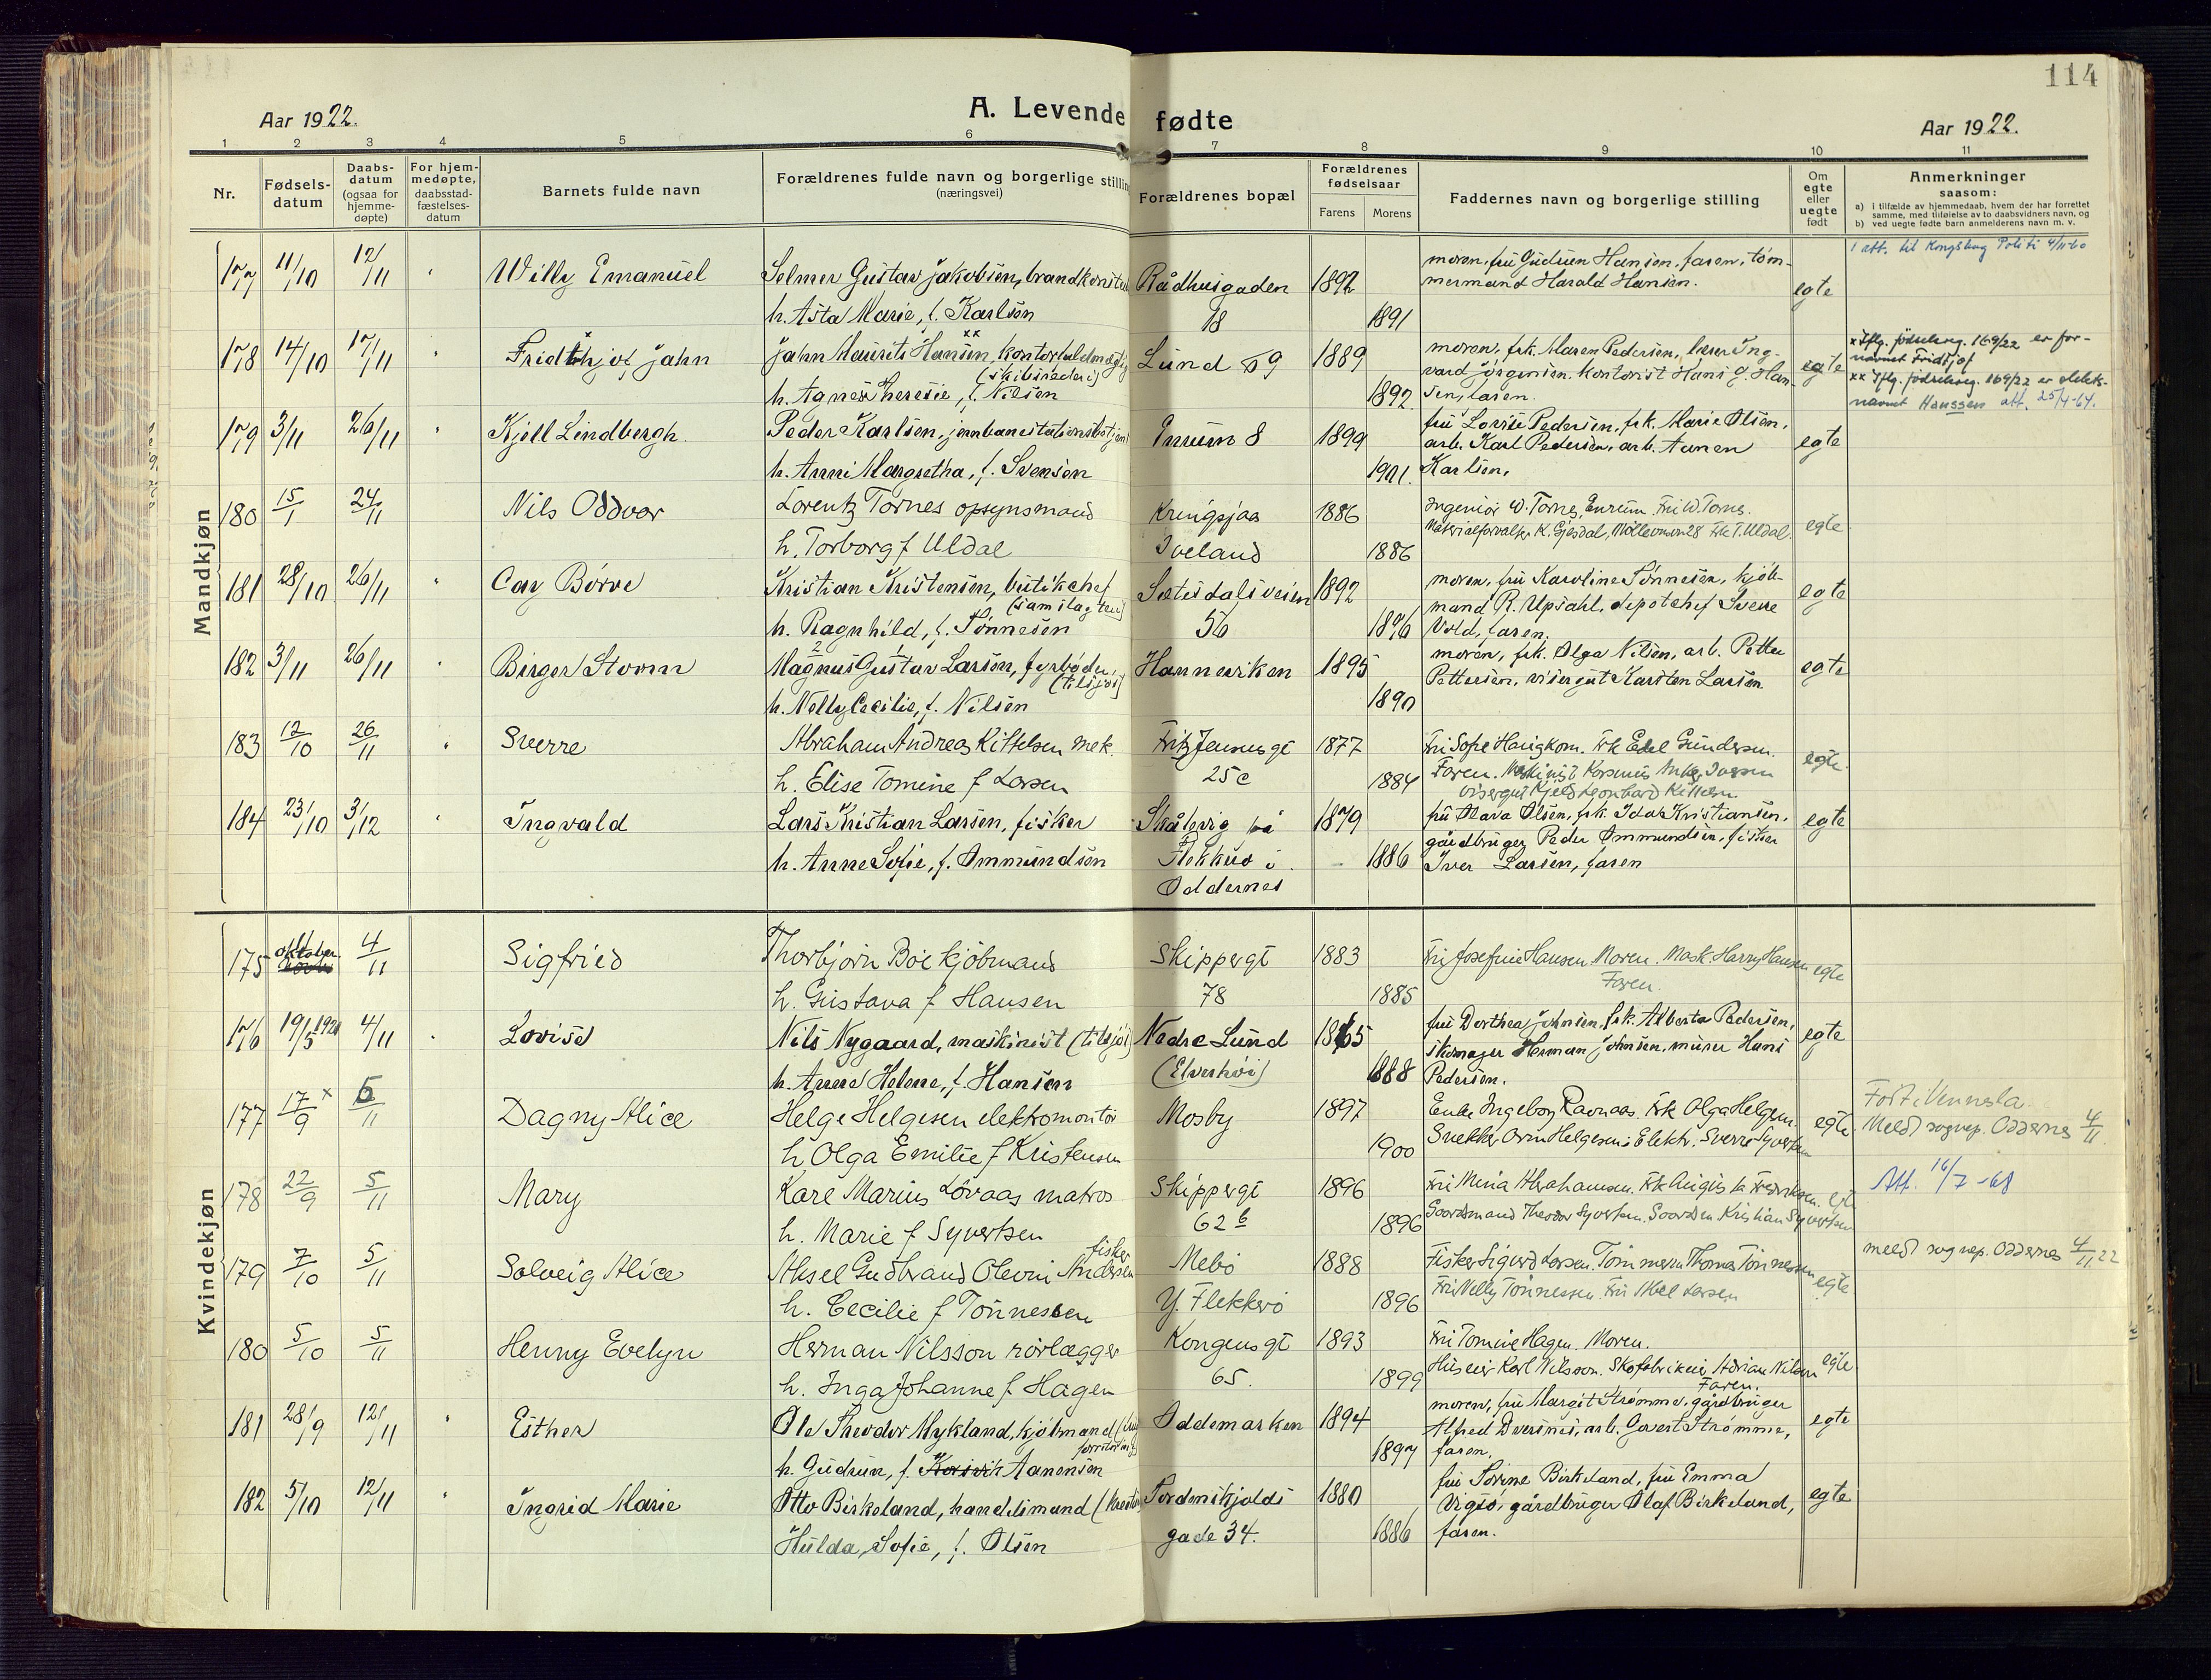 114
Aar 1922.
A. Levende fødte
Aar 1922.
1 2 3 4 5 6 7 8 9 10 11
Nr.
Fødsels-datum
Daabs-datum (ogsaa for hjemme-døpte)
For hjem-medøpte, daabsstad-fæstelses-datum
Barnets fulde navn
Forældrenes fulde navn og borgerlige stilling (næringsvei)
Forældrenes bopæl
Forældrenes fødselsaar
Farens Morens
Faddernes navn og borgerlige stilling
Om egte eller uegte født
Anmerkninger
saasom:
a) i tilfælde av hjemmedaab, hvem der har forrettet samme, med tilføielse av to daabsvidners navn, og
b) ved uegte fødte barn anmelderens navn m. v.
Mandkjøn
1 att. til Kongsberg Politi
177 11/10 12/11 Willy Emanuel Selmer Gustav Jakobsen, Rådhusgaden 1892 moren, fru Gudrun Hansen, faren, tøm-
mermand Harald Hansen. egte
h. Asta Marie, f. Karlsen 18 1891
178 14/10 17/11 Fridthjof Jahn Jahn Maurits Hansen, Lund 59 1889 moren, frk. Maren Pedersen, Ing-
vard Jörgensen, kontorist Hans J. Han- egte
(skibsrederi)
h. Agnes Theresie, f. Nilsen 1892. sen, faren.
x Iflg. födselsreg. 169/22 er for-
navnet Fridtjof
xx Iflg. födselsreg. 169/22 er slekts-
navnet Hanssen att. 25/4-64.
179 3/11 26/11 Kjell Lindbergh. Peder Karlsen, Enrum 8 1899 fru Lovise Pedersen, frk. Marie Olsen,
arb. Karl Pedersen, arb. egte
h. Anni Margretha, f. Svensen 1901. Karlsen.
180 15/1 24/11 Nils Oddvar Lorentz Tornes opsynsmand Kringsjaa 1886 Ingeniør W. Tornes, Enrum. Fru W. Tornes.
Materialforvalter K. Gjesdal, 28 Frk T. Uldal. egte
h. Torborg f Uldal Iveland 1886
181 28/10 26/11 Cay Børve Kristian Kristensen, butikchef Sætesdalsveien 1892 moren, fru Karoline Tønnesen, kjøb-
(samslag) mand R. Upsahl, depotchef Sverre egte
h. Ragnhild, f. Tønnesen 56 1896 Vold, faren.
182 3/11 26/11 Birger Storm Magnus Gustav Larsen, fyrbøder, Hannevikен 1895 moren, frk. Olga Nilsen, arb. Petter
(tilsjös) Pettersen, visergut Karsten Larsen egte
h. Nelly Cecilie, f. Nilsen 1890
183 12/10 26/11 Sverre Abraham Andreas Kittelsen mek. Fritz Jensensgt 1877 Fru Sofie Haugkom. Frk Edel Gundersen. egte
h. Elise Tomine f Larsen 25c 1884 Faren. Maskinist
visergut Kjeld Leonhard Kittelsen
184 23/10 3/12 Ingvald Lars Kristian Larsen, fisker Skålevig på 1879 fru Olava Olsen, frk. Ida Kristiansen, egte
gårdbruger Peder Ommundsen, fisker
h. Anne Sofie, f. Ommundsen Flekkerø i 1886 Iver Larsen, faren
Oddernes
Kvindekjøn
175 oktober 4/11 Sigfried Thorbjörn Boe kjöbmand Skippergt 1883 Fru Josefine Hansen. Moren. Mask. Harry Hansen egte
Faren.
h. Gustava f Hansen 78 1885
176 19/5 1921 4/11 Lovise Nils Nygaard, maskinist (tilsjös) Nedre Lund 1865 fru Dorthea Johnsen, frk. Alberta Pedersen, egte
skomager Herman Johnsen, murer Hans
h. Anne Helene, f. Hansen (Elverhøi) 1888 Pedersen.
177 17/9 x 5/11 Dagny Alice Helge Helgesen elektromontör Mosby 1897 Enke Ingeborg Ravnaas. Frk Olga Helgesen. egte
Snekker Helgesen. Elektr. Sverre Syvertsen
h Olga Emilie f Kristensen 1900
Født i Vennesla.
Meldt sognep. Oddernes 4/11
178 22/9 5/11 Mary Karl Marius Lövaas matros Skippergt 1896 Fru Mina Abrahamsen. Frk Augusta Fredriksen. egte
h. Marie f Syvertsen 62 b 1896 Theodor Syvertsen. Kristian Syvertsen
Att. 16/7-68
179 7/10 5/11 Solveig Alice Aksel Gudbrand Olevni Andersen fisker Mebö 1888 Fisker Sigurd Larsen. Tömmerm Thomas Tönnessen egte
h. Cecilie f Tönnessen Y. Flekkerö 1896 Fru Nelly Tönnessen. Fru Larsen
meldt sognep. Oddernes 4/11 22
180 5/10 5/11 Henny Evelyn Herman Nilsson rörlægger Kongensgt 1893 Fru Tomine Hagen. Moren.
Huseier Karl Nilsson. Skofabrikeier Adrian Nilsson egte
h. Inga Johanne f Hagen 65. 1899 Faren.
181 28/9 12/11 Esther Ole Theodor Mykland, kjöbmand Oddemarken 1894 moren, fru Margit Strømme, gårdbruger
Alfred Dversnes, arb. Govert Strømme, egte
h. Gudrun, f. Aanensen 1897 faren.
182 5/10 12/11 Ingrid Marie Otto Birkeland, handelsmand Tordenskjolds 1880 fru Sørine Birkeland, fru Emma
Vigsö, gårdbruger Olaf Birkeland, egte
Hulda Sofie, f. Olsen gade 34. 1886 faren.